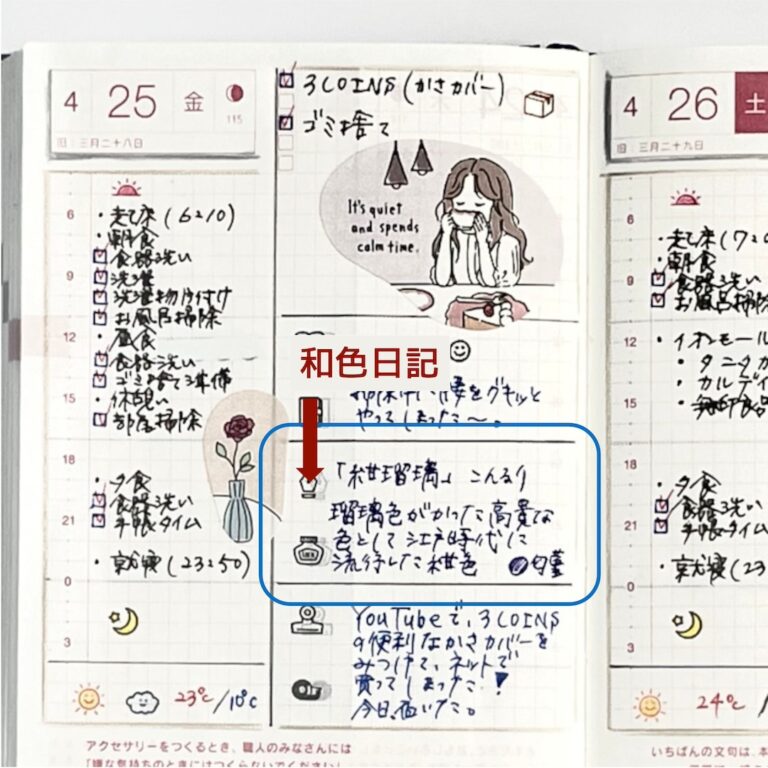 4 25 金
115
旧：三月二十八日
6
・起床(6:10)
・朝食
食器洗い
9
洗濯
洗濯物片付け
お風呂掃除
12
・昼食
食器洗い
ゴミ捨て準備
15
・休憩い
部屋掃除
18
・夕食
食器洗い
21
手帳タイム
・就寝(23:50)
0
3
23℃/10℃
3COINS(かさカバー)
ゴミ捨て
It's quiet
and spends
calm time.
和色日記
腰をグキッと
やってしまった〜。
「紺瑠璃」こんるり
瑠璃色がかった高貴な
色として江戸時代に
流行した紺色 匂菫
YouTubeで、3COINS
の便利なかさカバーを
みつけて、ネットで
買ってしまった！
今日、届いた。
アクセサリーをつくるとき、職人のみなさんには
「嫌な気持ちのときにはつくらないでください」
4 26 土
旧：三月二十九日
6
・起床(7:
・朝食
食器洗い
9
お風呂掃除
12
・イオンモール
・タニタカ
・カルディ
15
・無印良品
18
・夕食
食器洗い
21
手帳タイム
・就寝(23
0
3
24℃/
いちばんの文句は、本